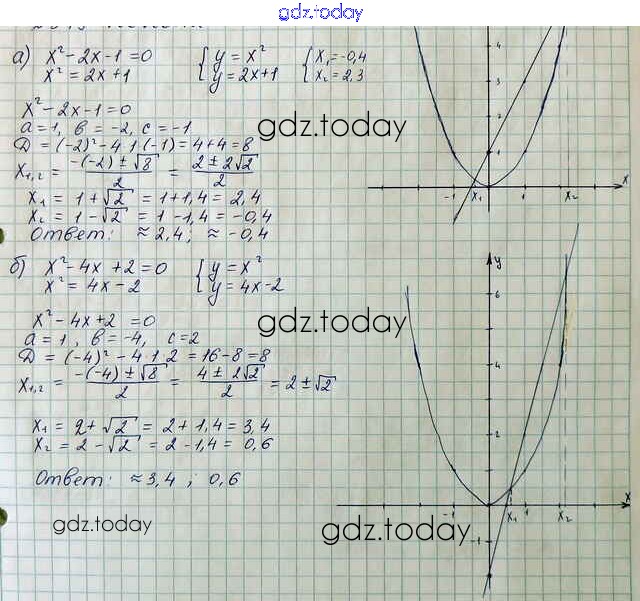 gdz.today
а) x² - 2x - 1 = 0 { y = x² { x₁ = -0,4
x² = 2x + 1 y = 2x + 1 x₂ = 2,3
x² - 2x - 1 = 0
a = 1, b = -2, c = -1
D = (-2)² - 4·1·(-1) = 4 + 4 = 8
x₁,₂ = (-(-2) ± √8)/2 = (2 ± 2√2)/2
x₁ = 1 + √2 = 1 + 1,4 = 2,4
x₂ = 1 - √2 = 1 - 1,4 = -0,4
Ответ: ≈ 2,4; ≈ -0,4
gdz.today
4
3
1
-1 x₁ 1 x₂ x
б) x² - 4x + 2 = 0 { y = x²
x² = 4x - 2 y = 4x - 2
x² - 4x + 2 = 0
a = 1, b = -4, c = 2
D = (-4)² - 4·1·2 = 16 - 8 = 8
x₁,₂ = (-(-4) ± √8)/2 = (4 ± 2√2)/2 = 2 ± √2
x₁ = 2 + √2 = 2 + 1,4 = 3,4
x₂ = 2 - √2 = 2 - 1,4 = 0,6
Ответ: ≈ 3,4 ; 0,6
gdz.today
y
6
4
2
x₁ 1 x₂ x
-1
gdz.today
gdz.today